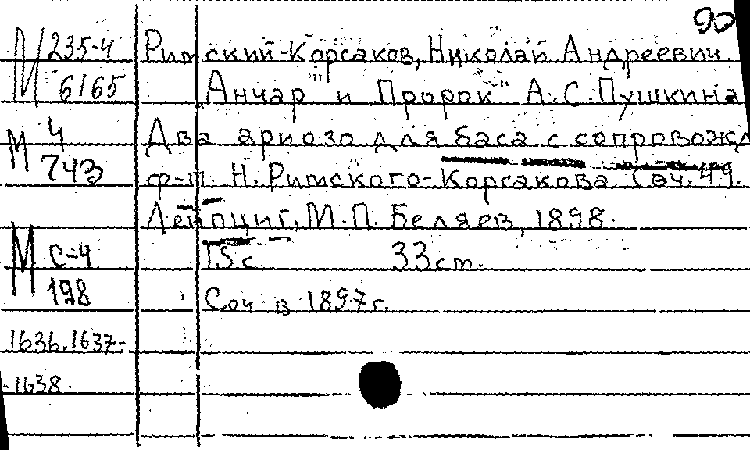 90
М 235-4 Римский-Корсаков, Николай Андреевич
6165 "Анчар" и "Пророк" А.С.Пушкина
М 4 Два ариозо для баса с сопровожд
743 ф-п. Н.Римского-Корсакова Соч. 49.
Лейпциг, М.П. Беляев, 1898.
М С-4 15с 33см.
198 Соч в 1897г.
1636.1637-
-1638